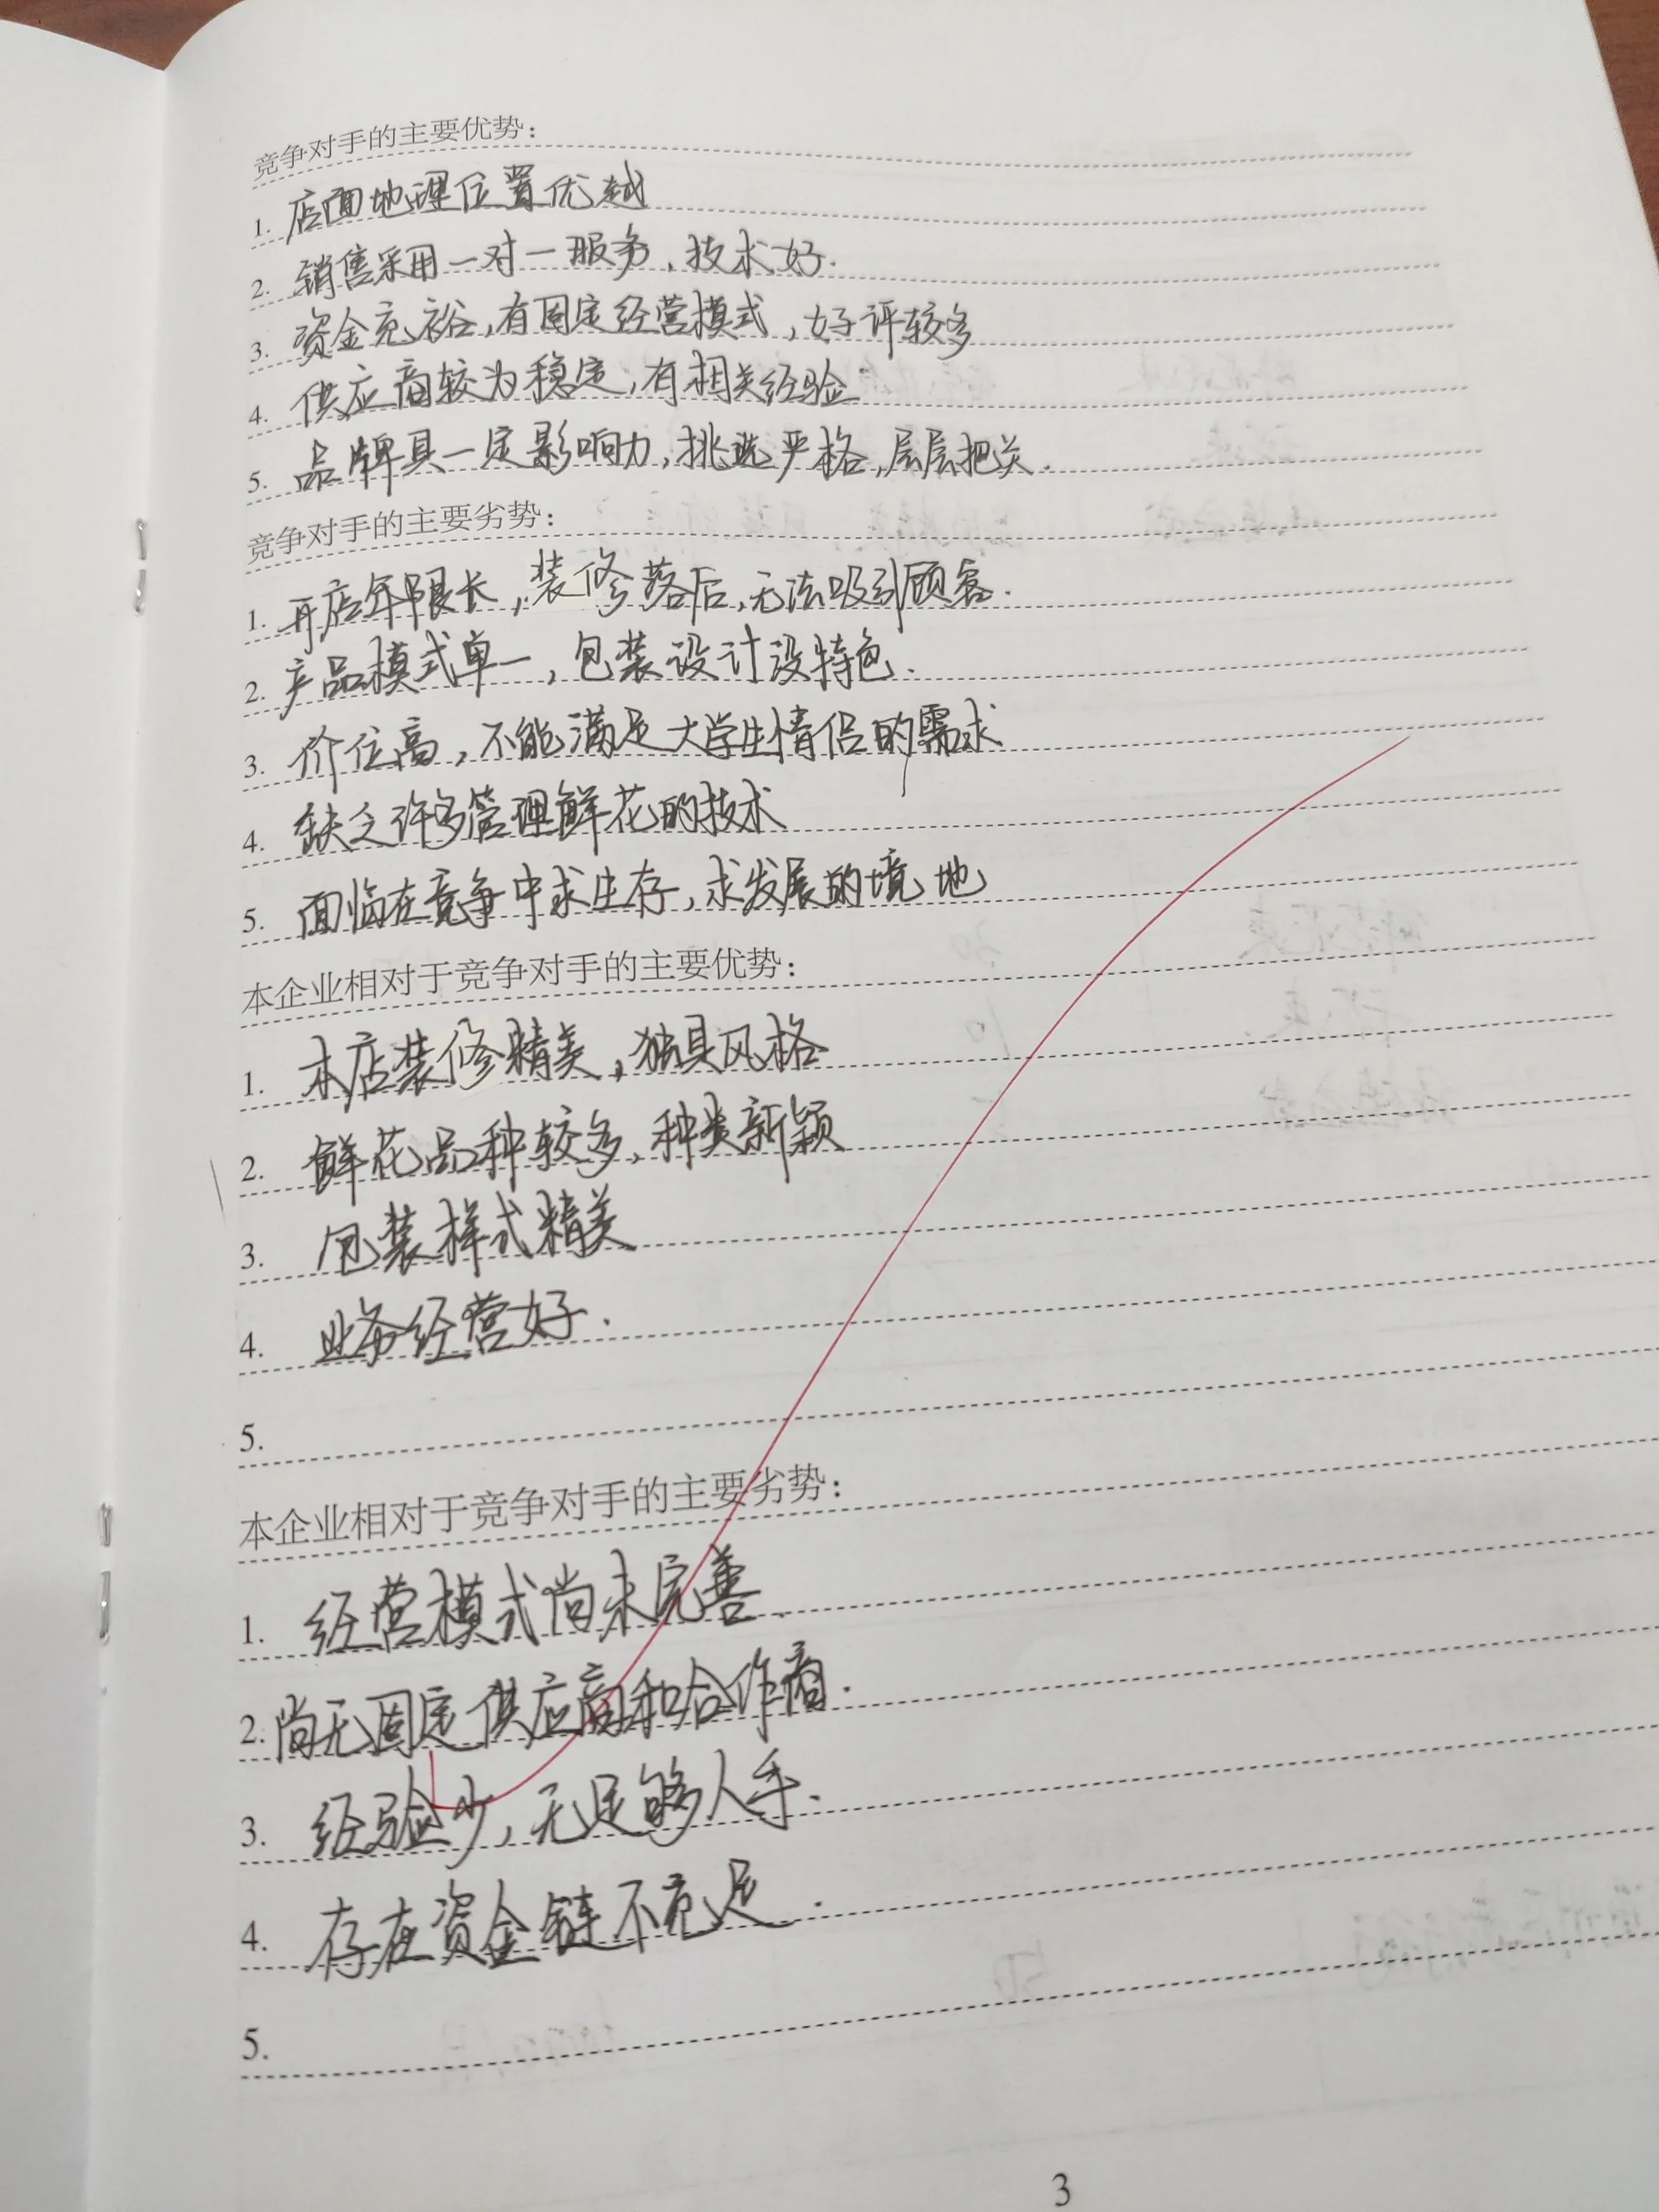 竞争对手的主要优势：
1. 店面地理位置优越
2. 销售采用一对一服务，技术好.
3. 资金充裕，有固定经营模式，好评较多
4. 供应商较为稳定，有相关经验
5. 品牌具一定影响力，挑选严格，层层把关.
竞争对手的主要劣势：
1. 开店年限长，装修落后，无法吸引顾客.
2. 产品模式单一，包装设计没特色.
3. 价位高，不能满足大学生情侣的需求
4. 缺乏许多管理鲜花的技术
5. 面临在竞争中求生存，求发展的境地
本企业相对于竞争对手的主要优势：
1. 本店装修精美，独具风格
2. 鲜花品种较多，种类新颖
3. 包装样式精美
4. 业务经营好.
5.
本企业相对于竞争对手的主要劣势：
1. 经营模式尚未完善.
2. 尚无固定供应商和合作商.
3. 经验少，无足够人手.
4. 存在资金链不充足.
5.
3